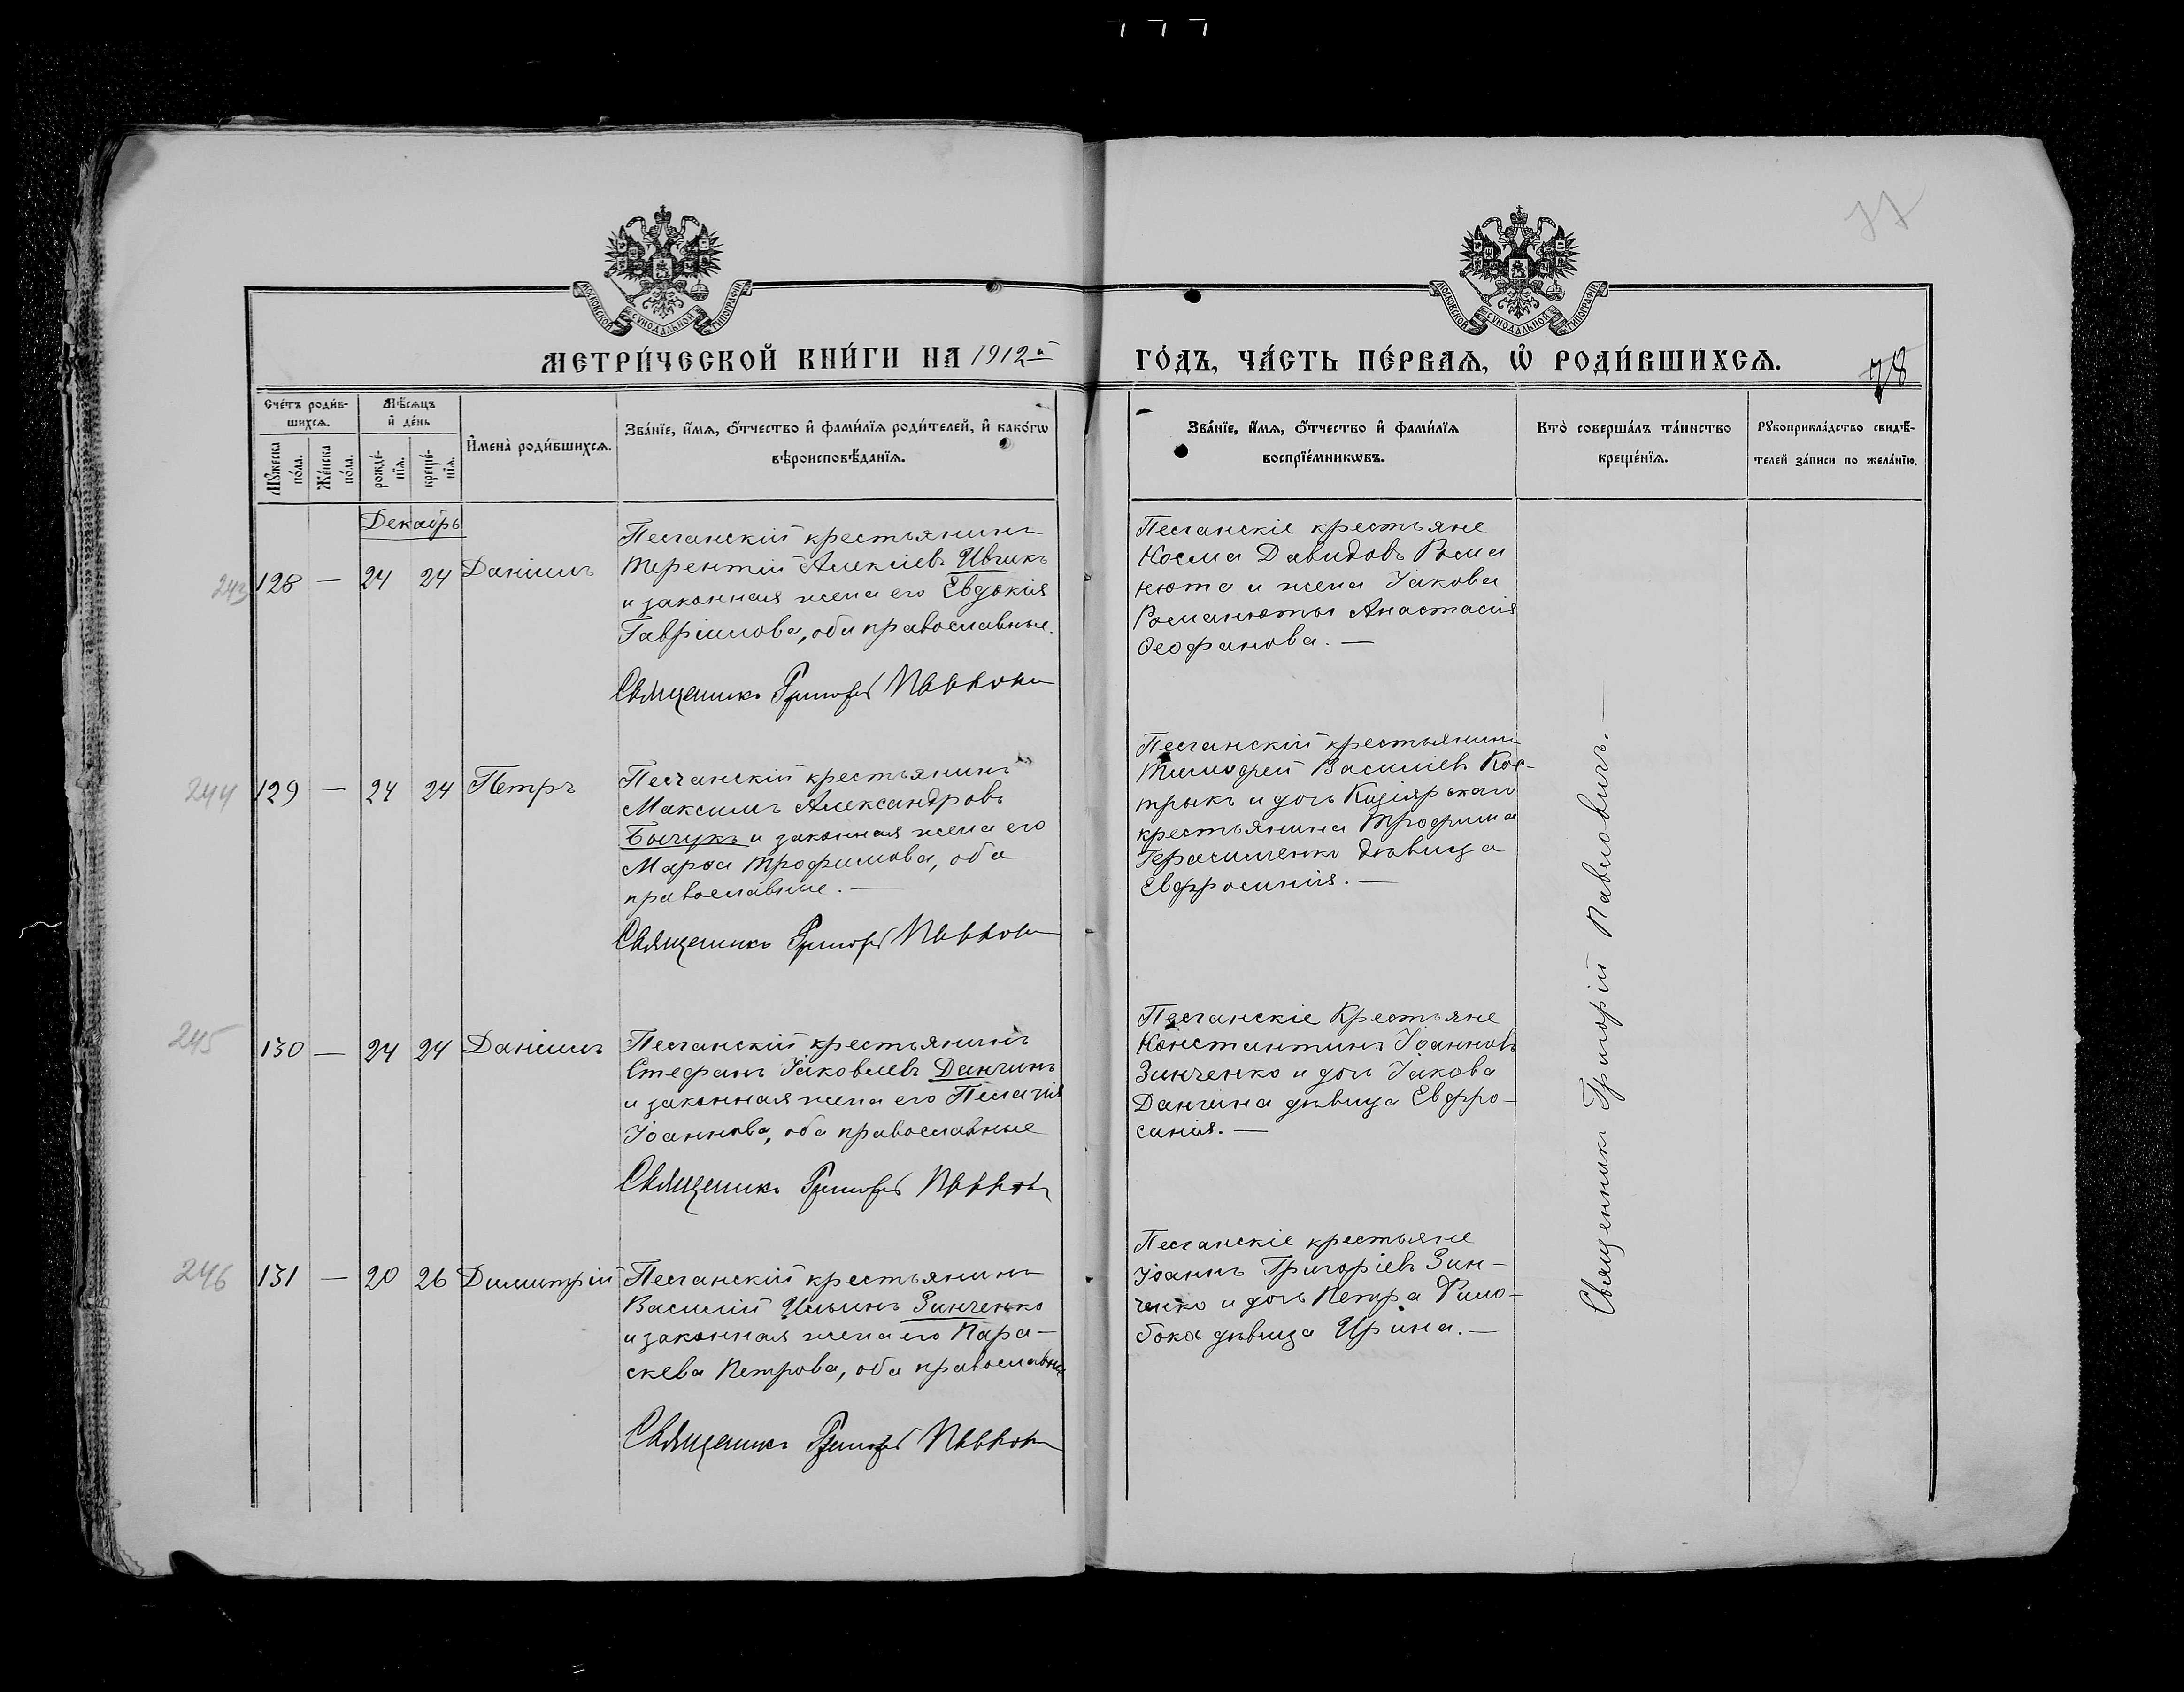 77
МОСКОВСКОЙ СУНОДАЛЬНОЙ ТИПОГРАФІИ
МОСКОВСКОЙ СУНОДАЛЬНОЙ ТИПОГРАФІИ
МЕТРИ́ЧЕСКОЙ КНИ́ГИ НА 1912й
ГО́ДЪ, ЧА́СТЬ ПЕ́РВАѦ, Ѡ҆ РОДИ́ВШИХСѦ.
78
Сче́тъ роди́в-
шихсѧ.
Мꙋ́жеска по́ла.
Же́нска по́ла.
Мѣ́сѧцъ
и҆ де́нь
рожде́-нїѧ.
креще́-нїѧ.
И҆мена̀ роди́вшихсѧ.
Зва́нїе, и҆́мѧ, ѻ҆́тчество и҆ фами́лїѧ роди́телей, и҆ како́гѡ
вѣроисповѣ́данїѧ.
Зва́нїе, и҆́мѧ, ѻ҆́тчество и҆ фами́лїѧ
воспрїе́мникѡвъ.
Кто̀ соверша́лъ та́инство
креще́нїѧ.
Рꙋкоприкла́дство свидѣ́-
телей за́писи по жела́нїю.
Декабрь
243 128 — 24 24 Даніилъ
Песчанскій крестьянинъ
Терентій Алексіевъ Ивчикъ
и законная жена его Евдокія
Гавріилова, оба православные.
Священникъ Григорій Павловичъ
Песчанскіе крестьяне
Косма Давидовъ Рома
нюта и жена Іакова
Романюты Анастасія
Ѳеофанова. —
244 129 — 24 24 Петръ
Песчанскій крестьянинъ
Максимъ Александровъ
Бычукъ и законная жена его
Марѳа Трофимова, оба
православные. —
Священникъ Григорій Павловичъ
Песчанскій крестьянинъ
Тимофей Василіевъ Кос-
трыкъ и дочь
крестьянина Трофима
Герасименко дѣвица
Евфросинія. —
245 130 — 24 24 Даніилъ
Песчанскій крестьянинъ
Стефанъ Іаковлевъ Данчинъ
и законная жена его Пелагія
Іоаннова, оба православные
Священникъ Григорій Павловичъ
Песчанскіе Крестьяне
Константинъ Іоанновъ
Зинченко и дочь Іакова
Данчина дѣвица Евфро-
синія. —
246 131 — 20 26 Димитрій
Песчанскій крестьянинъ
Василій Ильинъ Зинченко
и законная жена его Пара-
скева Петрова, оба православные
Священникъ Григорій Павловичъ
Песчанскіе крестьяне
Іоаннъ Григоріевъ Зин-
ченко и дочь Петра
дѣвица Ирина. —
Священникъ Григорій Павловичъ. —